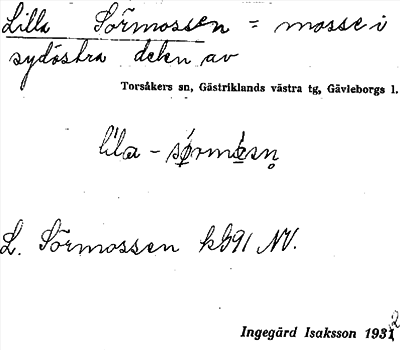 Lilla Sörmossen = mosse i
sydöstra delen av
Torsåkers sn, Gästriklands västra tg, Gävleborgs l.
L. Sörmossen kbl91 NV.
Ingegärd Isaksson 1932